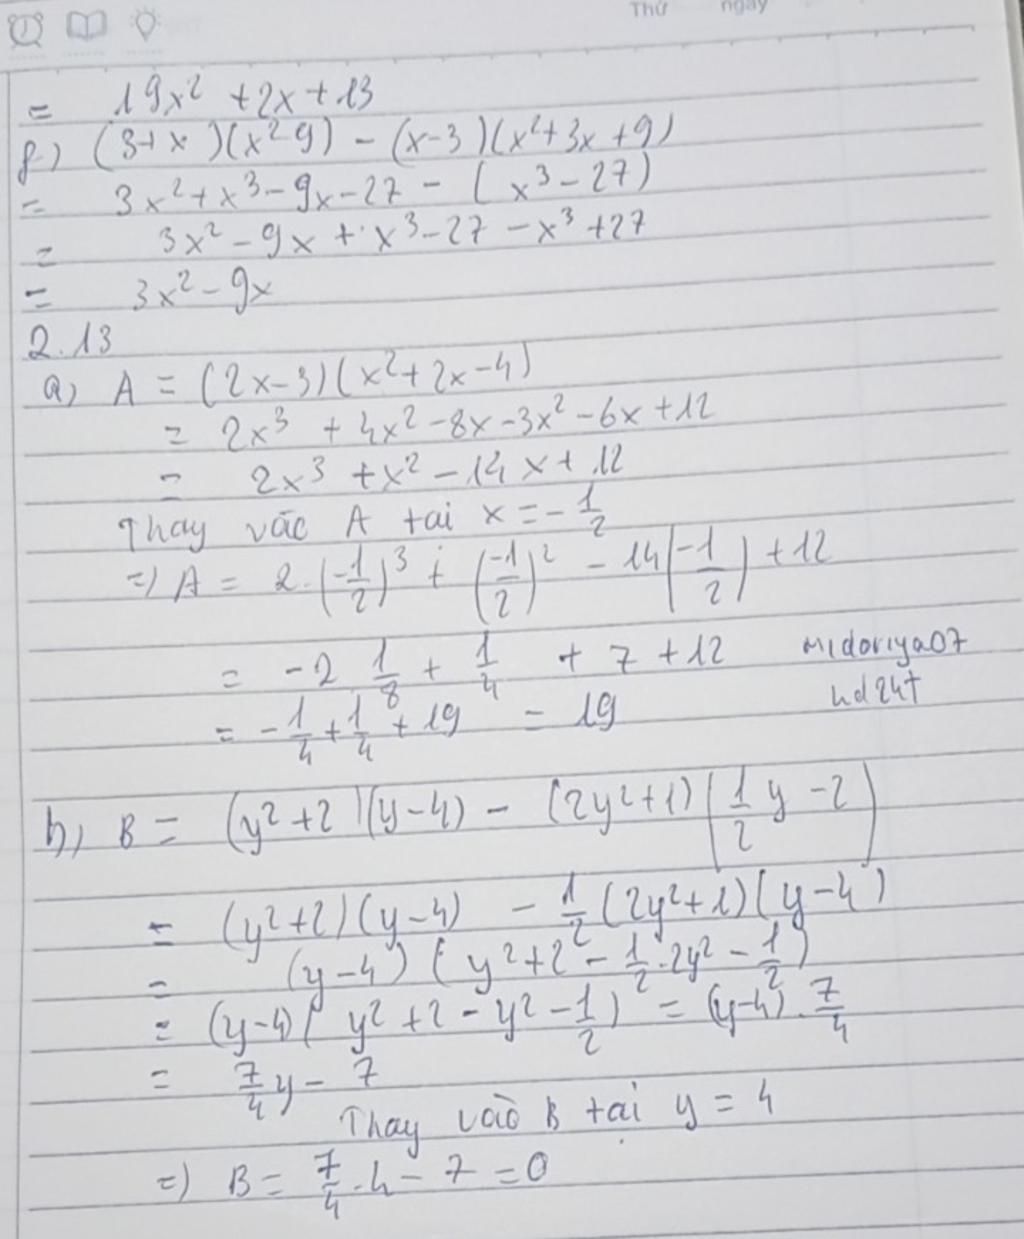 Thứ ngày
= 19x² + 2x + 13
f) (3 + x)(x² - 9) - (x-3)(x² + 3x + 9)
= 3x² + x³ - 9x - 27 - (x³ - 27)
= 3x² - 9x + x³ - 27 - x³ + 27
= 3x² - 9x
2.13
a) A = (2x-3)(x² + 2x - 4)
= 2x³ + 4x² - 8x - 3x² - 6x + 12
= 2x³ + x² - 14x + 12
Thay vào A tại x = -1/2
=> A = 2.(-1/2)³ + (-1/2)² - 14(-1/2) + 12
= -2 1/8 + 1/4 + 7 + 12 midoriya07
= -1/4 + 1/4 + 19 = 19 hd247
b) B = (y² + 2)(y-4) - (2y² + 1)(1/2 y - 2)
= (y² + 2)(y-4) - 1/2 (2y² + 1)(y-4)
= (y-4)(y² + 2 - 1/2 . 2y² - 1/2)
= (y-4)(y² + 2 - y² - 1/2) = (y-4) . 7/4
= 7/4 y - 7
Thay vào B tại y = 4
=> B = 7/4 . 4 - 7 = 0